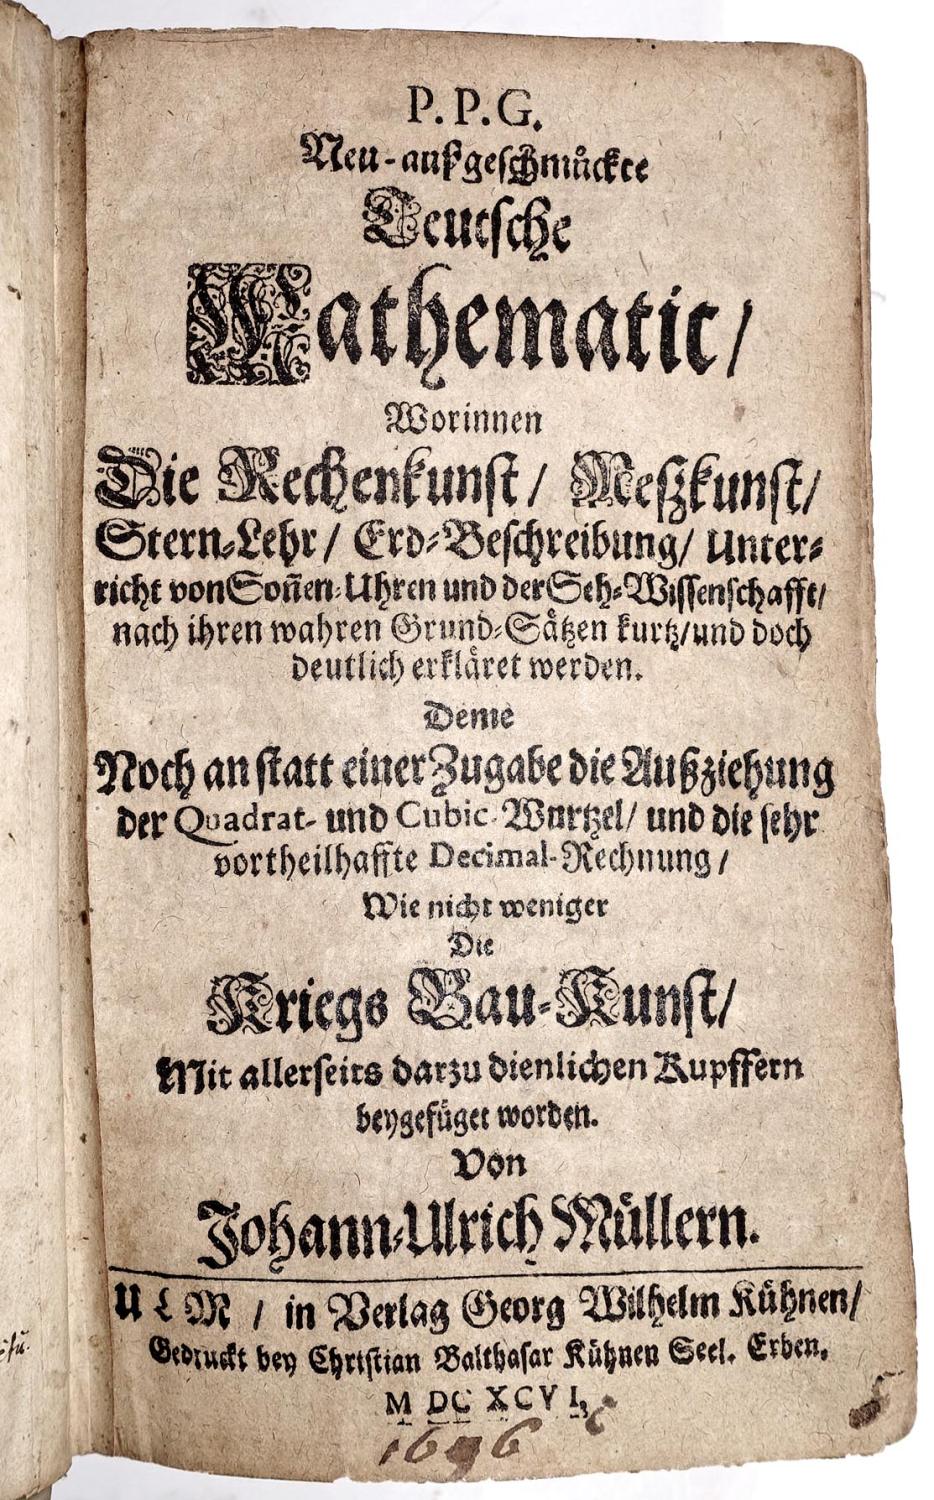 P. P. G.
Neu-außgeschmůckte
Teutsche
Mathematic/
Worinnen
Die Rechenkunst/ Meßkunst/
Stern-Lehr/ Erd-Beschreibung/ Unter-
richt von Soñen-Uhren und der Seh-Wissenschafft/
nach ihren wahren Grund-Sätzen kurtz/und doch
deutlich erkläret werden.
Deme
Noch an statt einer Zugabe die Außziehung
der Quadrat- und Cubic-Wurtzel/ und die sehr
vortheilhaffte Decimal-Rechnung/
Wie nicht weniger
Die
Kriegs Bau-Kunst/
Mit allerseits darzu dienlichen Kupffern
beygefüget worden.
Von
Johann-Ulrich Müllern.
ULM / in Verlag Georg Wilhelm Kühnen/
Gedruckt bey Christian Balthasar Kühnen Seel. Erben.
M DC XCVI.
1696